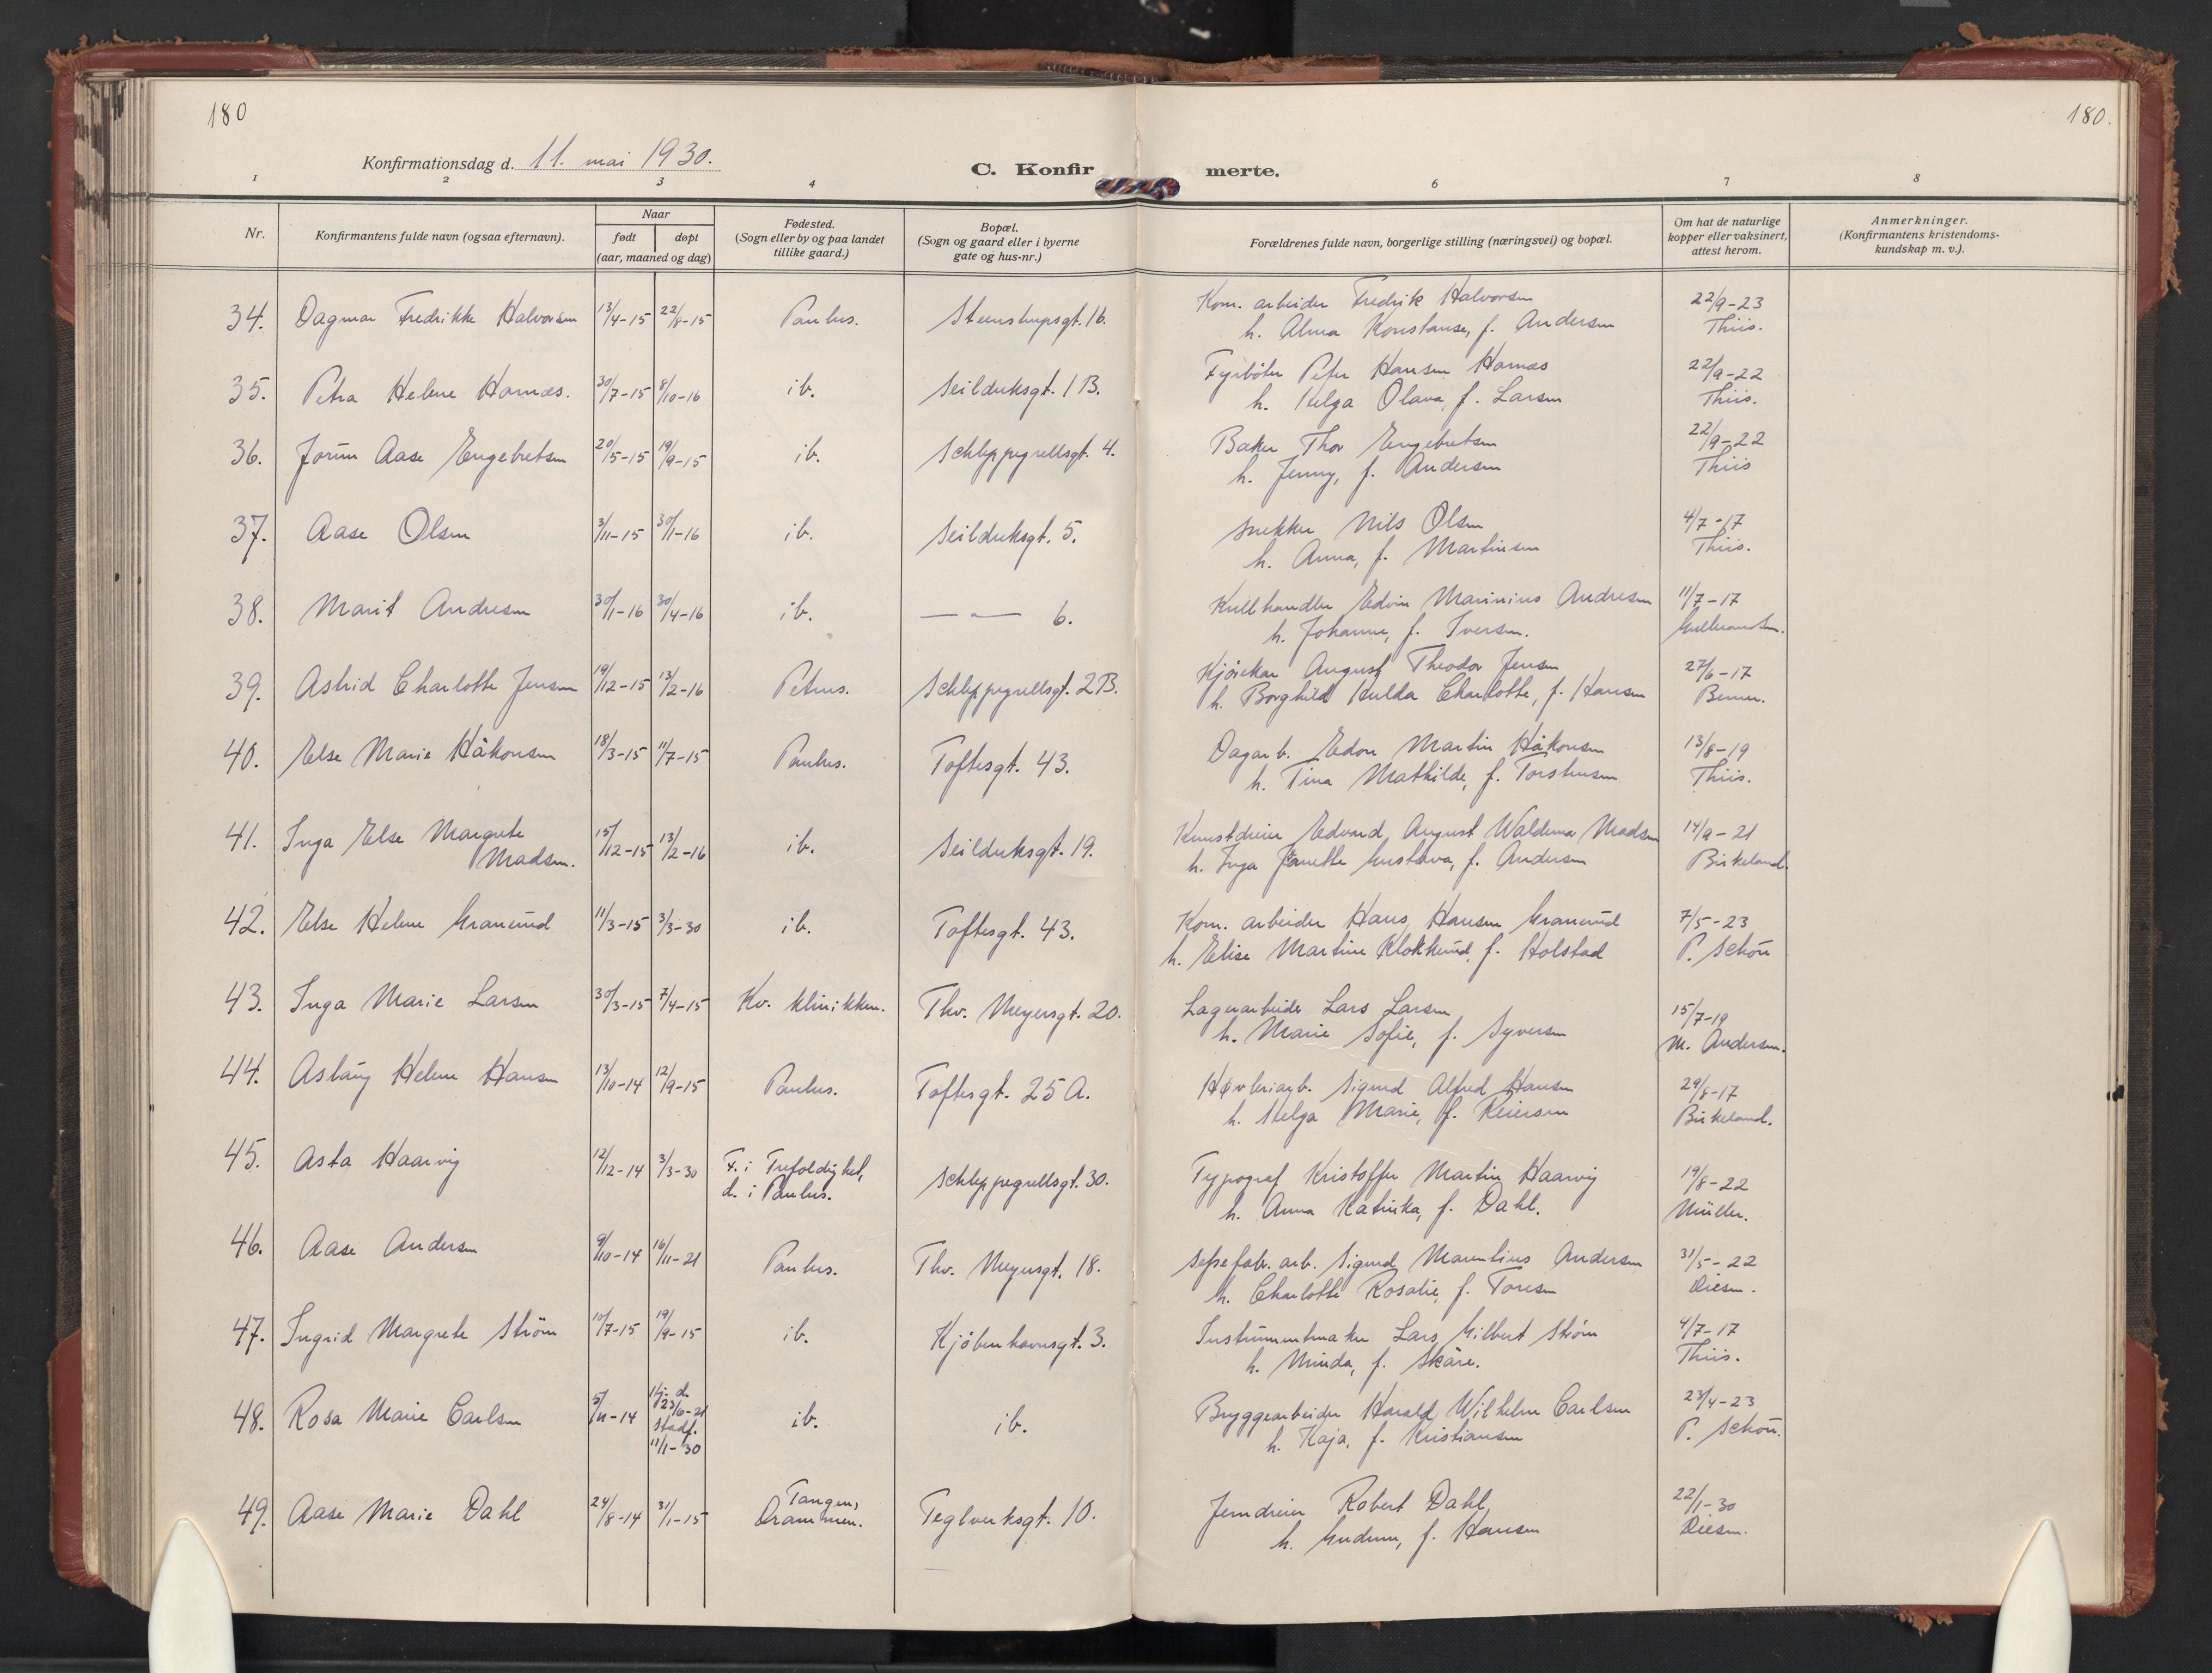 180
180.
Konfirmationsdag d. 11. mai 1930.
C. Konfirmerte.
1 2 3 4 6 7 8
Nr.
Konfirmantens fulde navn (ogsaa efternavn).
Naar
født
døpt
(aar, maaned og dag)
Fødested.
(Sogn eller by og paa landet
tillike gaard.)
Bopæl.
(Sogn og gaard eller i byerne
gate og hus-nr.)
Forældrenes fulde navn, borgerlige stilling (næringsvei) og bopæl.
Om hat de naturlige
kopper eller vaksinert,
attest herom.
Anmerkninger.
(Konfirmantens kristendoms-
kundskap m. v.).
34. Dagmar Fredrikke Halvorsen 13/4-15 22/8-15 Paulus. Steenstrupsgt. 16. Kom. arbeider Fredrik Halvorsen 22/9-23
h. Alma Konstanse, f. Andersen Thiis.
35. Petra Helene Hornæs. 30/7-15 8/10-16 ib. Seilduksgt. 1 B. Fyrbøter Peter Hansen Hornæs 22/9-22
h. Helga Olava, f. Larsen Thiis.
36. Jorun Aase Engebretsen 20/5-15 19/9-15 ib. Schleppegrellsgt. 4. Baker Thor Engebretsen 22/9-22
h. Jenny, f. Andersen Thiis
37. Aase Olsen 3/11-15 30/1-16 ib. Seilduksgt. 5. Snekker Nils Olsen 4/7-17
h. Anna, f. Martinsen Thiis.
38. Marit Andresen 30/1-16 30/4-16 ib. — " — 6. Kullhandler Edvin Marinius Andresen 11/7-17
h. Johanne, f. Iversen. Gulbrandsen.
39. Astrid Charlotte Jensen 19/12-15 13/2-16 Petrus. Schleppegrellsgt. 2 B. Kjørekar August Theodor Jensen 27/6-17
h. Borghild Hulda Charlotte, f. Hansen
40. Else Marie Håkonsen 18/3-15 11/7-15 Paulus. Toftesgt. 43. Dagarb. Edon Martin Håkonsen 13/8-19
h. Tina Mathilde, f. Torstensen Thiis.
41. Inga Else Margrete 15/12-15 13/2-16 ib. Seilduksgt. 19. Kunstdreier Edvard August Waldemar Madsen 14/9-21
Madsen. h. Inga Janette Gustava, f. Andersen Birkeland.
42. Else Helene Granerud 11/3-15 3/3-30 ib. Toftesgt. 43. Kom. arbeider Hans Hansen Granerud 7/5-23
h. Elise Martine Klokkerud, f. Holstad P. Schøn
43. Inga Marie Larsen 30/3-15 7/4-15 Kv. klinikken. Thv. Meyersgt. 20. Lagerarbeider Lars Larsen 15/7-19
h. Marie Sofie, f. Syversen M. Andersen.
44. Aslaug Helene Hansen 13/10-14 12/9-15 Paulus. Toftesgt. 25 A. Høvleriarb. Sigurd Alfred Hansen 29/8-17
h. Helga Marie, f. Reiersen Birkeland.
45. Asta Haarvig 12/12-14 3/3-30 F. i Trefoldighet, Schleppegrellsgt. 30. Typograf Kristoffer Martin Haarvig 19/8-22
d. i Paulus. h. Anna Katinka, f. Dahl. Müller.
46. Aase Andersen 9/10-14 16/11-21 Paulus. Thv. Meyersgt. 18. Sepefabr. arb. Sigurd Marentius Andersen 31/5-22
h. Charlotte Rosalie, f. Toresen Diesen.
47. Ingrid Margrete Strøm 10/7-15 19/9-15 ib. Kjøbenhavnsgt. 3. Instrumentmaker Lars Gilbert Strøm 4/7-17
h. Minda, f. Skåre. Thiis.
48. Rosa Marie Carlsen 5/11-14 Hj. d. 23/6-21 ib. ib. Bryggearbeider Harald Wilhelm Carlsen 23/4-23
stadf. 11/1-30 h. Kaja, f. Kristiansen P. Schøn.
49. Aase Marie Dahl 24/8-14 31/1-15 Tangen, Drammen. Teglverksgt. 10. Jerndreier Robert Dahl, 22/1-30
h. Gudrun, f. Hansen Diesen.